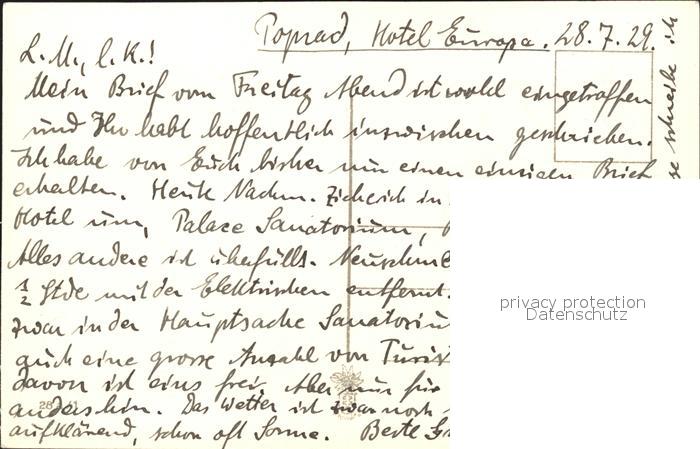 Poprad, Hotel Europa. 28.7.29.
L. M., l. K.!
Mein Brief vom Freitag Abend ist wohl eingetroffen
und Ihr habt hoffentlich inzwischen geschrieben.
Ich habe von Euch bisher nur einen einzigen Brief
erhalten. Heute Nachm. ziehe ich in
Hotel um, Palace Sanatorium,
Alles andere ist überfüllt.
1/2 Stde mit der Elektrischen entfernt.
zwar in der Hauptsache
auch eine grosse Anzahl von
davon ist eins frei. Aber nur für
anders hin. Das Wetter ist zwar noch
aufklärend, schon oft Sonne. Beste
schreibe ich
privacy protection
Datenschutz